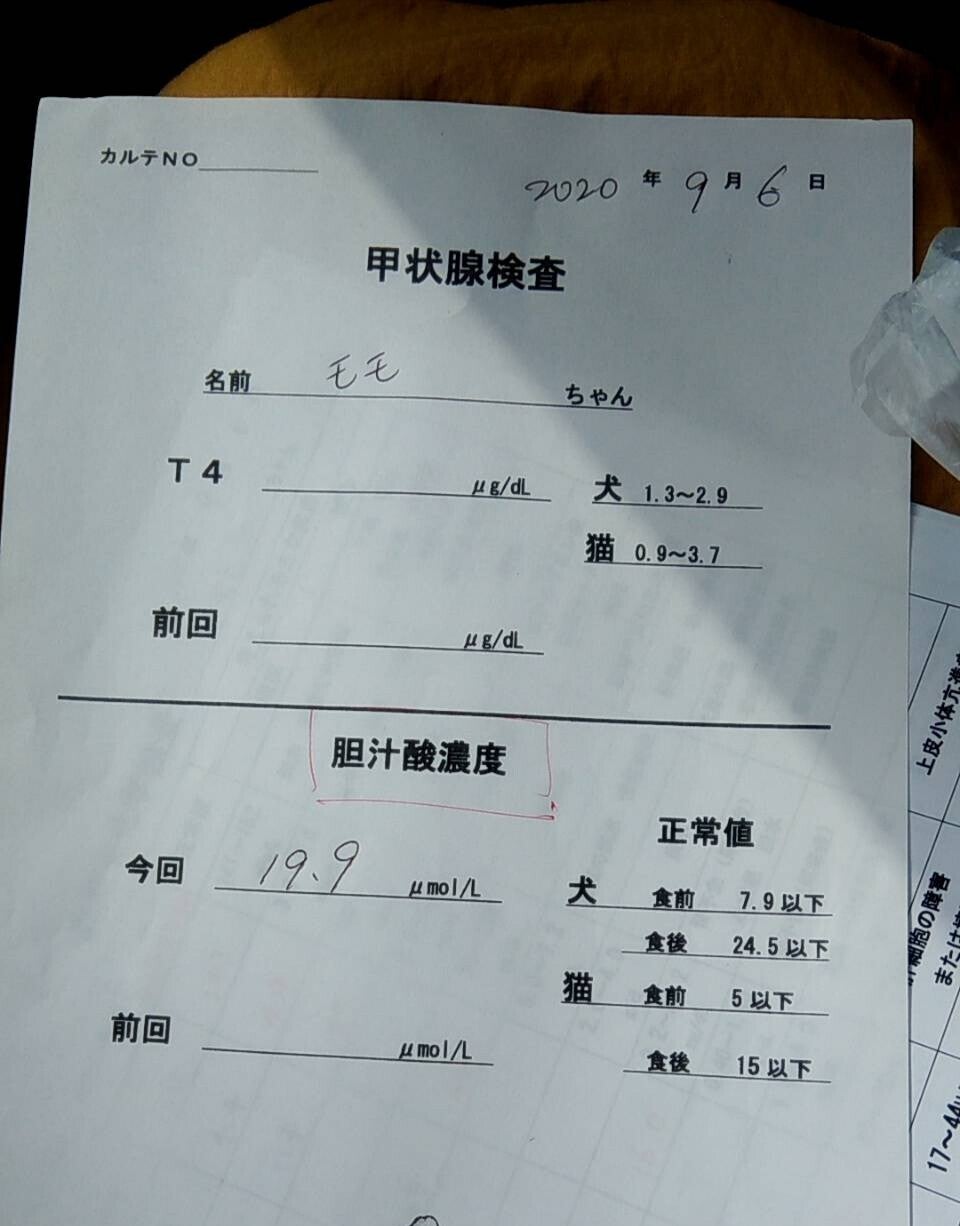 カルテNO
2020 年 9 月 6 日
甲状腺検査
名前 モモ ちゃん
T4 μg/dL 犬 1.3～2.9
猫 0.9～3.7
前回 μg/dL
胆汁酸濃度
正常値
今回 19.9 μmol/L 犬 食前 7.9以下
食後 24.5以下
猫 食前 5以下
前回 μmol/L
食後 15以下
上皮小体亢進
細胞の障害
または
17～44